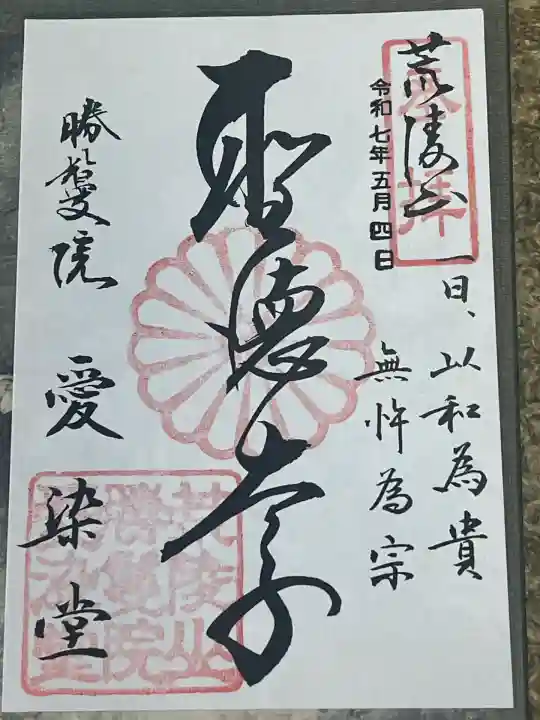 荒陵山
奉拝
令和七年五月四日
一日、以和為貴
無忤為宗
聖徳太子
勝鬘院 愛染堂
荒陵山
勝鬘院
愛染堂